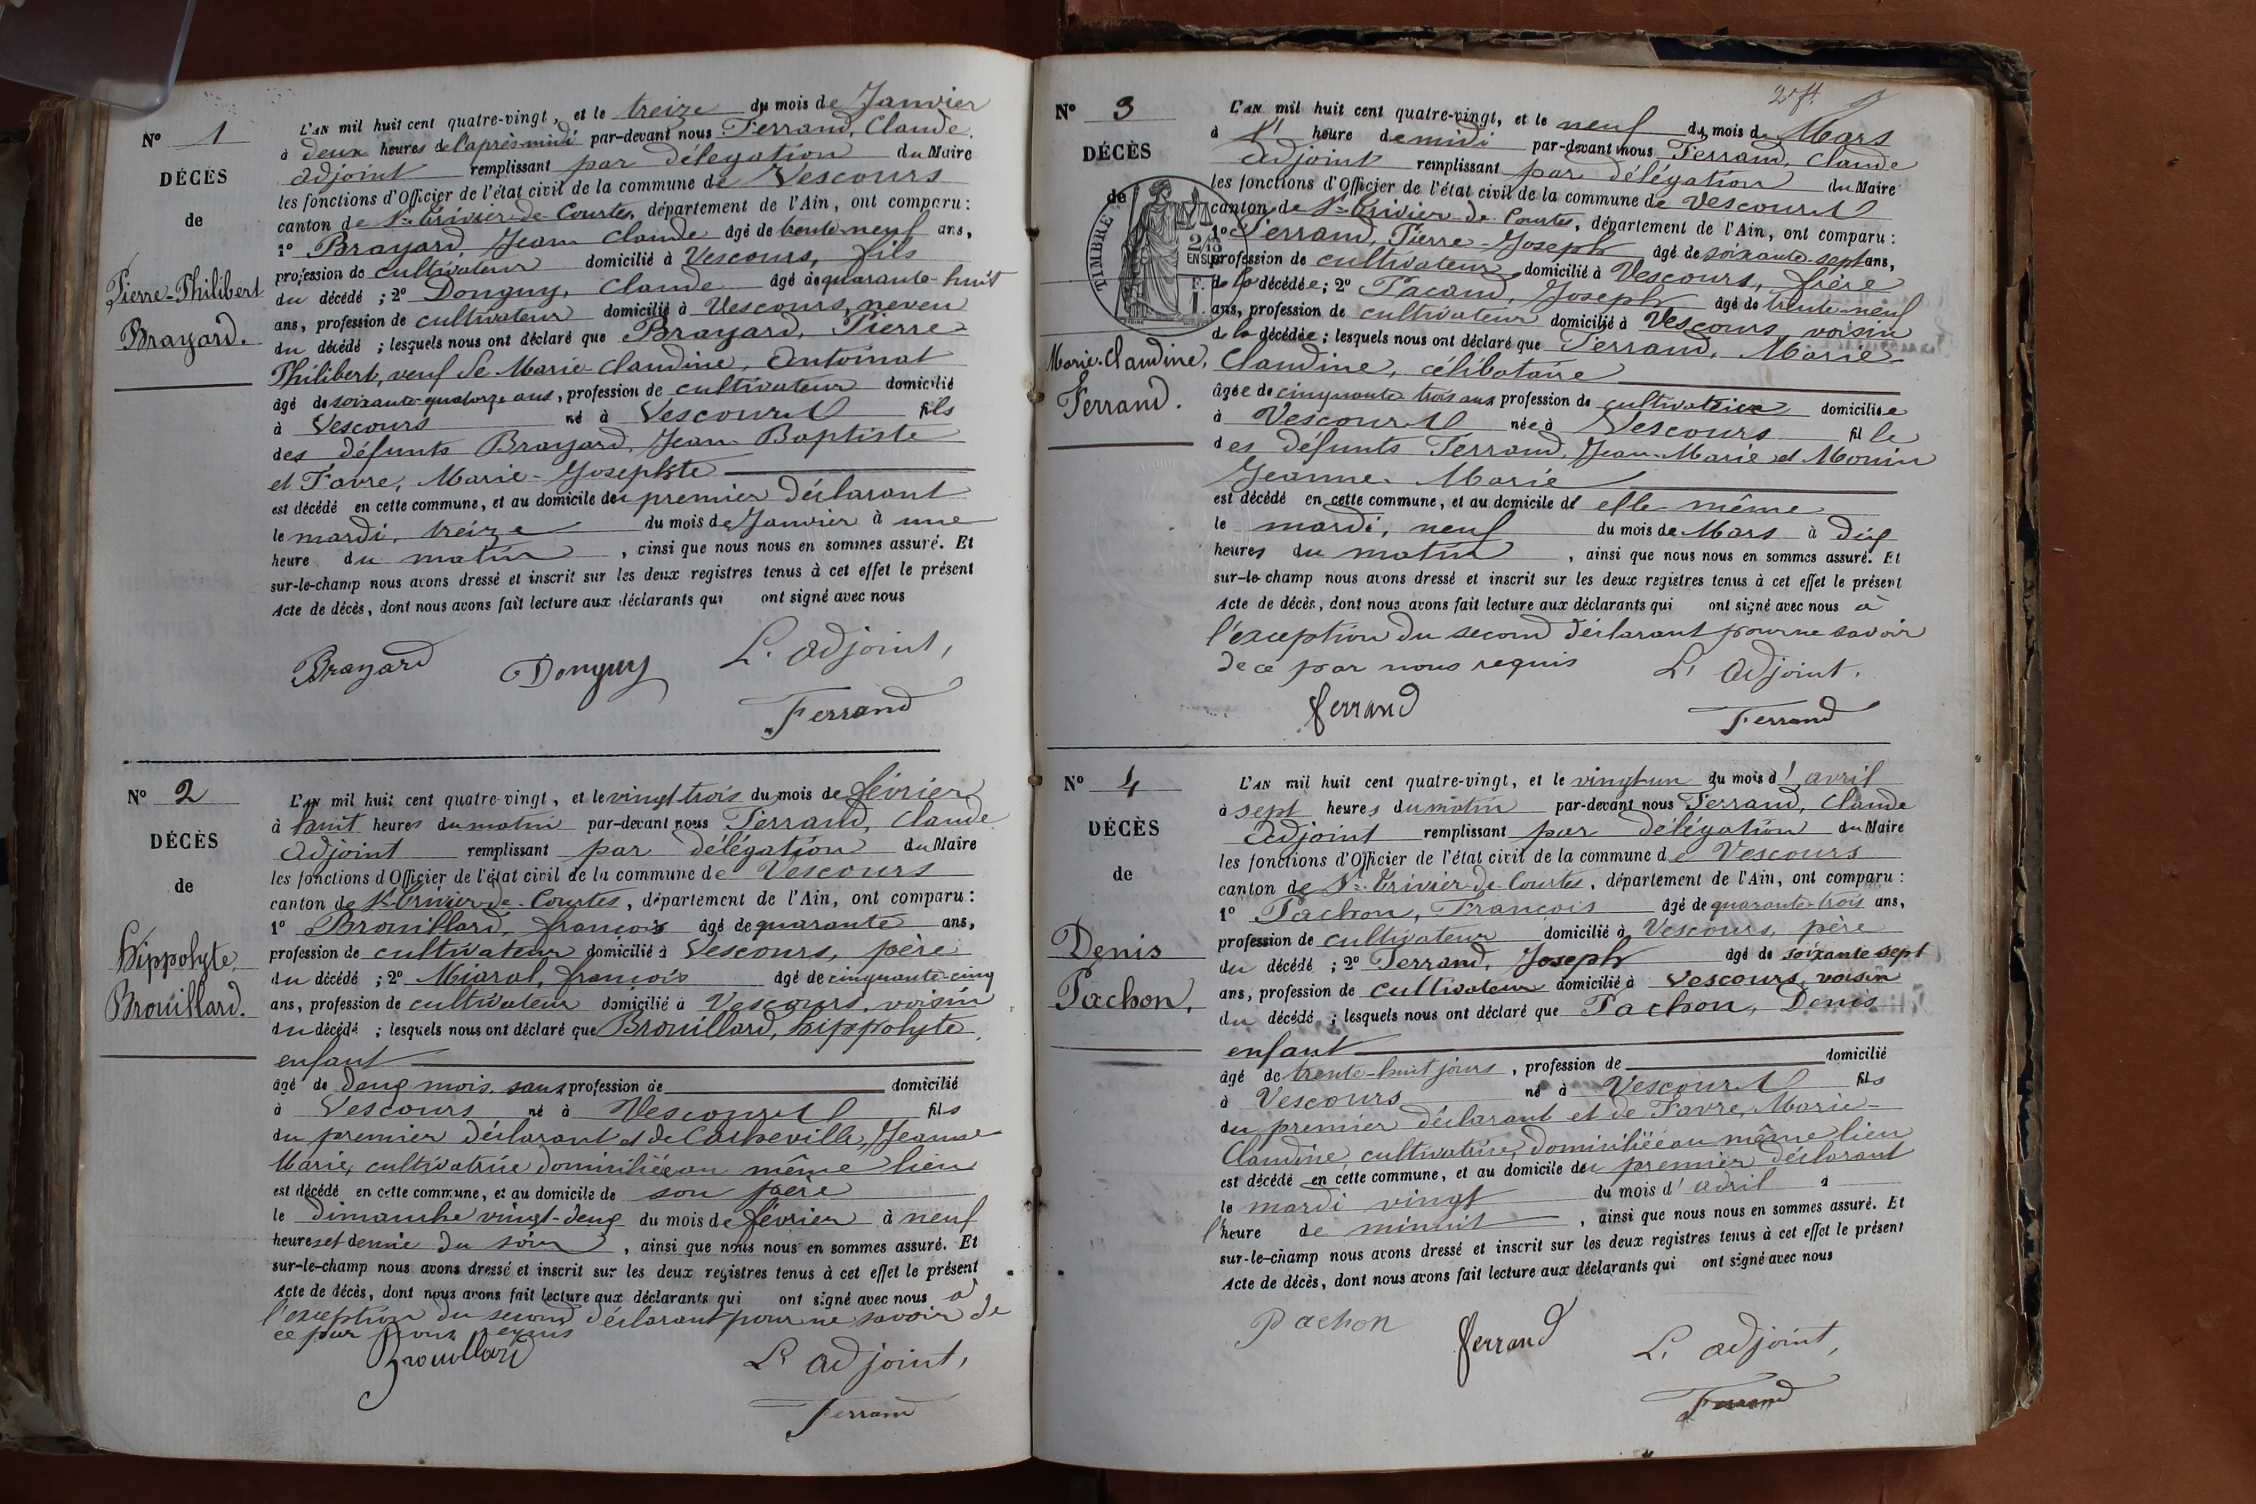 N° 1
DÉCÈS
de
Pierre-Philibert
Brayard.
L'AN mil huit cent quatre-vingt, et le treize du mois de Janvier
à deux heures de l'après-midi par-devant nous Ferrand, Claude.
adjoint remplissant par délégation du Maire
les fonctions d'Officier de l'état civil de la commune de Vescours
canton de St-Trivier-de-Courtes, département de l'Ain, ont comparu :
1° Brayard, Jean Claude âgé de trente-neuf ans,
profession de cultivateur domicilié à Vescours, fils
du décédé ; 2° Donguy, Claude âgé de quarante-huit
ans, profession de cultivateur domicilié à Vescours, neveu
du décédé ; lesquels nous ont déclaré que Brayard, Pierre-
Philibert, veuf de Marie Claudine, Antoinat
âgé de soixante-quatorze ans, profession de cultivateur domicilié
à Vescours né à Vescours fils
des défunts Brayard, Jean-Baptiste
et Favre, Marie-Josephte
est décédé en cette commune, et au domicile du premier déclarant
le mardi, treize du mois de Janvier à une
heure du matin, ainsi que nous nous en sommes assuré. Et
sur-le-champ nous avons dressé et inscrit sur les deux registres tenus à cet effet le présent
Acte de décès, dont nous avons fait lecture aux déclarants qui ont signé avec nous
Brayard Donguy L'adjoint,
Ferrand
N° 2
DÉCÈS
de
Hippolyte
Brouillard.
L'AN mil huit cent quatre-vingt, et le vingt trois du mois de février
à huit heures du matin par-devant nous Ferrand, Claude
Adjoint remplissant par délégation du Maire
les fonctions d'Officier de l'état civil de la commune de Vescours
canton de St-Trivier-de-Courtes, département de l'Ain, ont comparu :
1° Brouillard, françois âgé de quarante ans,
profession de cultivateur domicilié à Vescours, père
du décédé ; 2° Miaral, françois âgé de cinquante-cinq
ans, profession de cultivateur domicilié à Vescours, voisin
du décédé ; lesquels nous ont déclaré que Brouillard, hippolyte,
enfant
âgé de deux mois, sans profession de domicilié
à Vescours né à Vescours fils
du premier déclarant et de Catheville, Jeanne
Marie, cultivatrice domiciliée au même lieu
est décédé en cette commune, et au domicile de son père
le dimanche vingt-deux du mois de février à neuf
heures et demie du soir, ainsi que nous nous en sommes assuré. Et
sur-le-champ nous avons dressé et inscrit sur les deux registres tenus à cet effet le présent
Acte de décès, dont nous avons fait lecture aux déclarants qui ont signé avec nous à
l'exception du second déclarant pour ne savoir de
ce par nous requis
Brouillard L'adjoint,
Ferrand
N° 3
DÉCÈS
de
TIMBRE
Marie-Claudine,
Ferrand.
L'AN mil huit cent quatre-vingt, et le neuf du mois de Mars
à l' heure de midi par-devant nous Ferrand, Claude
Adjoint remplissant par délégation du Maire
les fonctions d'Officier de l'état civil de la commune de Vescours
canton de St-Trivier-de-Courtes, département de l'Ain, ont comparu :
1° Ferrand, Pierre-Joseph âgé de soixante-sept ans,
profession de cultivateur domicilié à Vescours, frère
de la décédée ; 2° Pacaud, Joseph âgé de trente-neuf
ans, profession de cultivateur domicilié à Vescours voisin
de la décédée ; lesquels nous ont déclaré que Ferrand, Marie-
Claudine, célibataire
âgée de cinquante trois ans profession de cultivatrice domiciliée
à Vescours née à Vescours fille
des défunts Ferrand, Jean-Marie et Monin
Jeanne-Marie
est décédé en cette commune, et au domicile d'elle-même
le mardi, neuf du mois de Mars à dix
heures du matin, ainsi que nous nous en sommes assuré. Et
sur-le-champ nous avons dressé et inscrit sur les deux registres tenus à cet effet le présent
Acte de décès, dont nous avons fait lecture aux déclarants qui ont signé avec nous à
l'exception du second déclarant pour ne savoir
de ce par nous requis L'Adjoint.
Ferrand Ferrand
N° 4
DÉCÈS
de
Denis
Pachon,
L'AN mil huit cent quatre-vingt, et le vingt-un du mois d'avril
à sept heures du matin par-devant nous Ferrand, Claude
Adjoint remplissant par délégation du Maire
les fonctions d'Officier de l'état civil de la commune de Vescours
canton de St-Trivier-de-Courtes, département de l'Ain, ont comparu :
1° Pachon, François âgé de quarante-trois ans,
profession de cultivateur domicilié à Vescours, père
du décédé ; 2° Ferrand, Joseph âgé de soixante sept
ans, profession de cultivateur domicilié à Vescours, voisin
du décédé ; lesquels nous ont déclaré que Pachon, Denis
enfant
âgé de trente-huit jours, profession de domicilié
à Vescours né à Vescours fils
du premier déclarant et de Favre, Marie-
Claudine, cultivatrice, domiciliée au même lieu
est décédé en cette commune, et au domicile du premier déclarant
le mardi vingt du mois d'avril à
l'heure de minuit, ainsi que nous nous en sommes assuré. Et
sur-le-champ nous avons dressé et inscrit sur les deux registres tenus à cet effet le présent
Acte de décès, dont nous avons fait lecture aux déclarants qui ont signé avec nous
Pachon Ferrand L'adjoint,
Ferrand